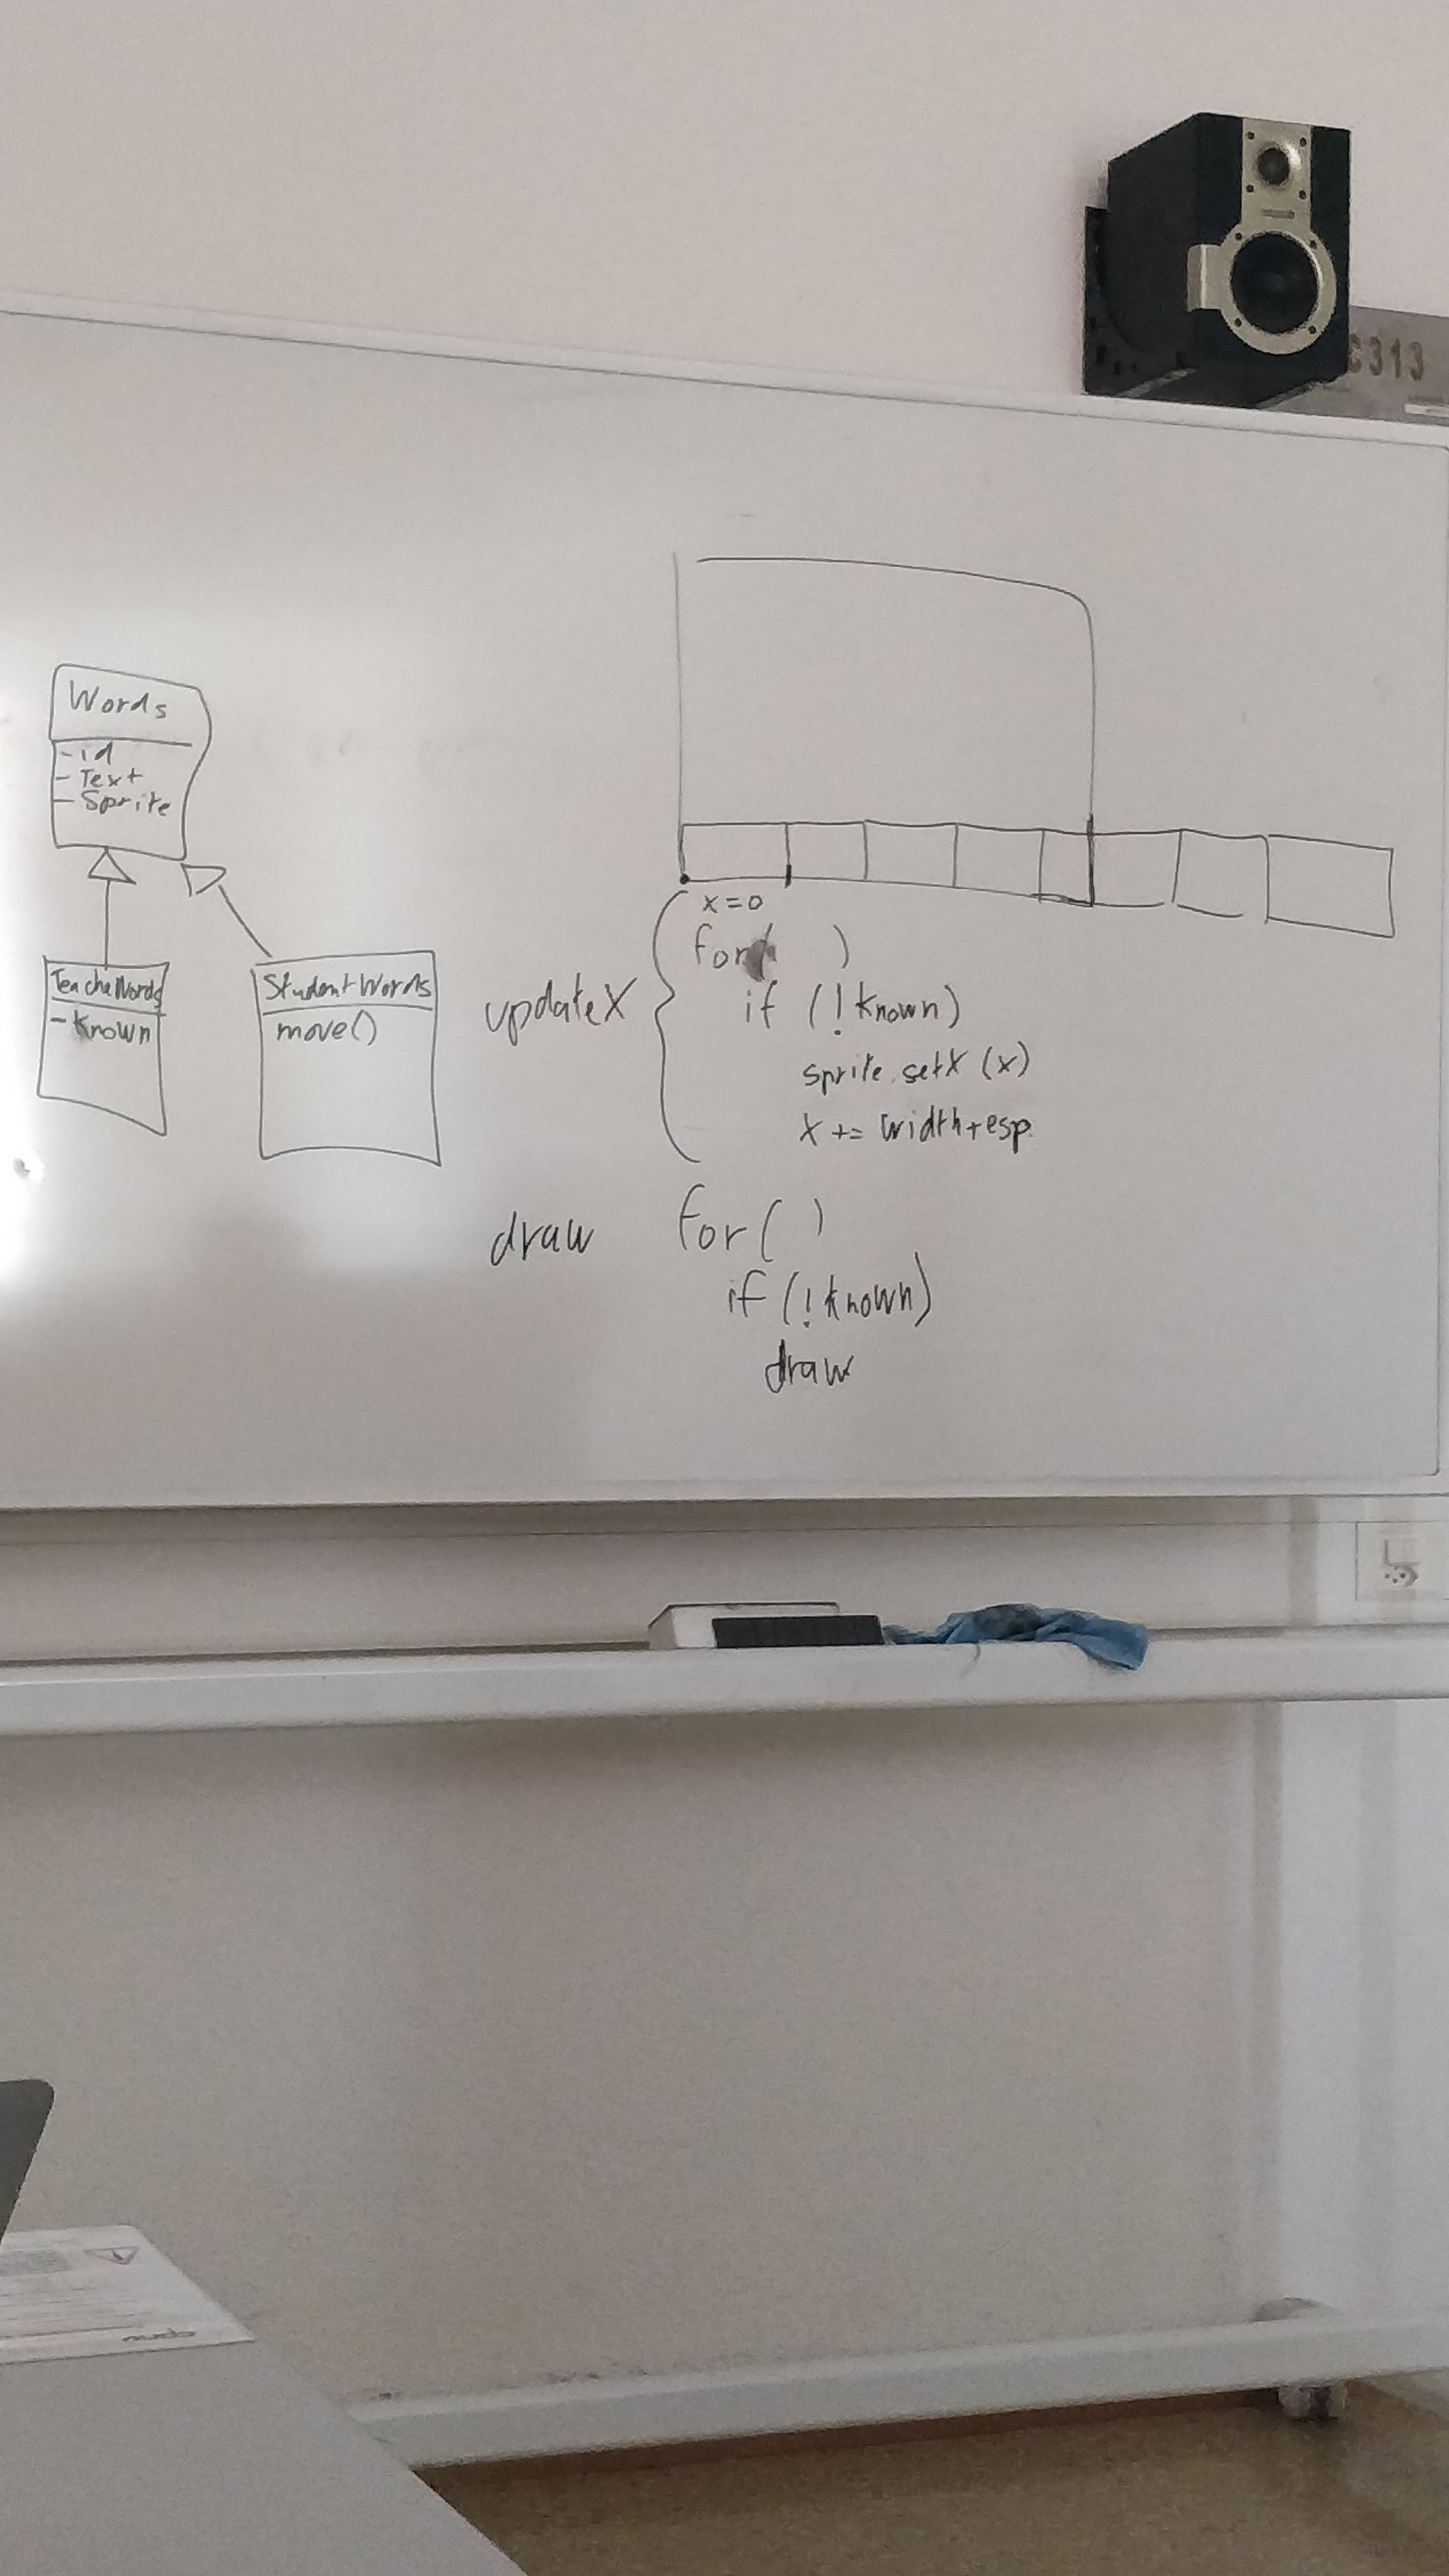 C313
Words
- id
- Text
- Sprite
TeacheWords
- Known
StudentWords
move()
updateX
x = 0
for( )
if (!known)
sprite.setX (x)
x += width+esp.
draw
for( )
if (!known)
draw